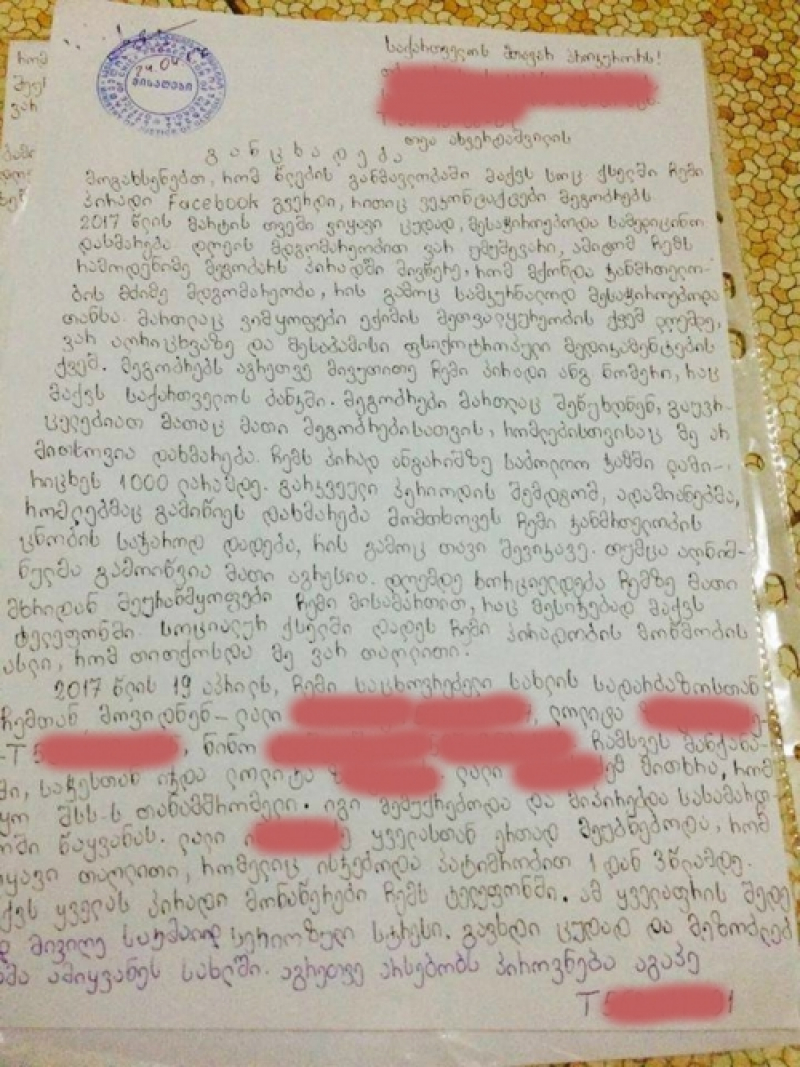 საქართველოს მთავარ პროკურორს!
თეა ახვერდაშვილის
განცხადება
მოგახსენებთ, რომ წლების განმავლობაში მაქვს სოც ქსელში ჩემი
პირადი Facebook გვერდი, რითიც ვეკონტაქტები მეგობრებს.
2017 წლის მარტის თვეში ვიყავი ცუდად, მესაჭიროებოდა სამედიცინო
დახმარება დღეის მდგომარეობით ვარ უმუშევარი, ამიტომ ჩემს
რამოდენიმე მეგობარს პირადში მივწერე, რომ მქონდა ჯანმრთელო-
ბის მძიმე მდგომარეობა, რის გამოც სამკურნალოდ მესაჭიროებოდა
თანხა. მართლაც ვიმყოფები ექიმის მეთვალყურეობის ქვეშ დღემდე,
ვარ აღრიცხვაზე და შესაბამისი ფსიქოტროპული მედიკამენტების
ქვეშ. მეგობრებს აგრეთვე მივუთითე ჩემი პირადი ანგ ნომერი, რაც
მაქვს საქართველოს ბანკში. მეგობრები მართლაც შეწუხდნენ, გაუვრ-
ცელებიათ მათაც მათი მეგობრებისათვის, რომლებისთვისაც მე არ
მითხოვია დახმარება. ჩემს პირად ანგარიშზე საბოლოო ჯამში დამი-
რიცხეს 1000 ლარამდე. გარკვეული პერიოდის შემდგომ, ადამიანებმა,
რომლებმაც გამიწიეს დახმარება მომთხოვეს ჩემი ჯანმრთელობის
ცნობის საჯაროდ დადება, რის გამოც თავი შევიკავე. თუმცა აღნიშ-
ნულმა გამოიწვია მათი აგრესია. დღემდე ხორციელდება ჩემზე მათი
მხრიდან შეურაწმყოფები ჩემი მისამართით, რაც მესიჯებად მაქვს
ტელეფონში. სოციალურ ქსელში დადეს ჩემი პირადობის მოწმობის
ასლი, რომ თითქოსდა მე ვარ თაღლითი.
2017 წლის 19 აპრილს, ჩემი საცხოვრებელი სახლის სადარბაზოსთან
ჩემთან მოვიდნენ - ლალი , ლოლიტა
-T 5 , ნინო ჩამსვეს მანქანა-
ში, საჭესთან იჯდა ლოლიტა ლალი მითხრა, რომ
იყო შსს-ს თანამშრომელი. იგი მემუქრებოდა და მიპირებდა სასამართ-
ლოში წაყვანას. ლალი ი ე ყველასთან ერთად მეუბნებოდა, რომ
ვიყავი თაღლითი, რომელიც ისჯებოდა პატიმრობით 1 დან 3 წლამდე.
მაქვს ყველას პირადი მონაწერები ჩემს ტელეფონში. ამ ყველაფრის შედე
დ მივიღე საკმაოდ სერიოზული სტრესი. გავხდი ცუდად და მეზობლებ
მა ამიყვანეს სახლში. აგრეთვე არსებობს პიროვნება აგაპე
T 5 1